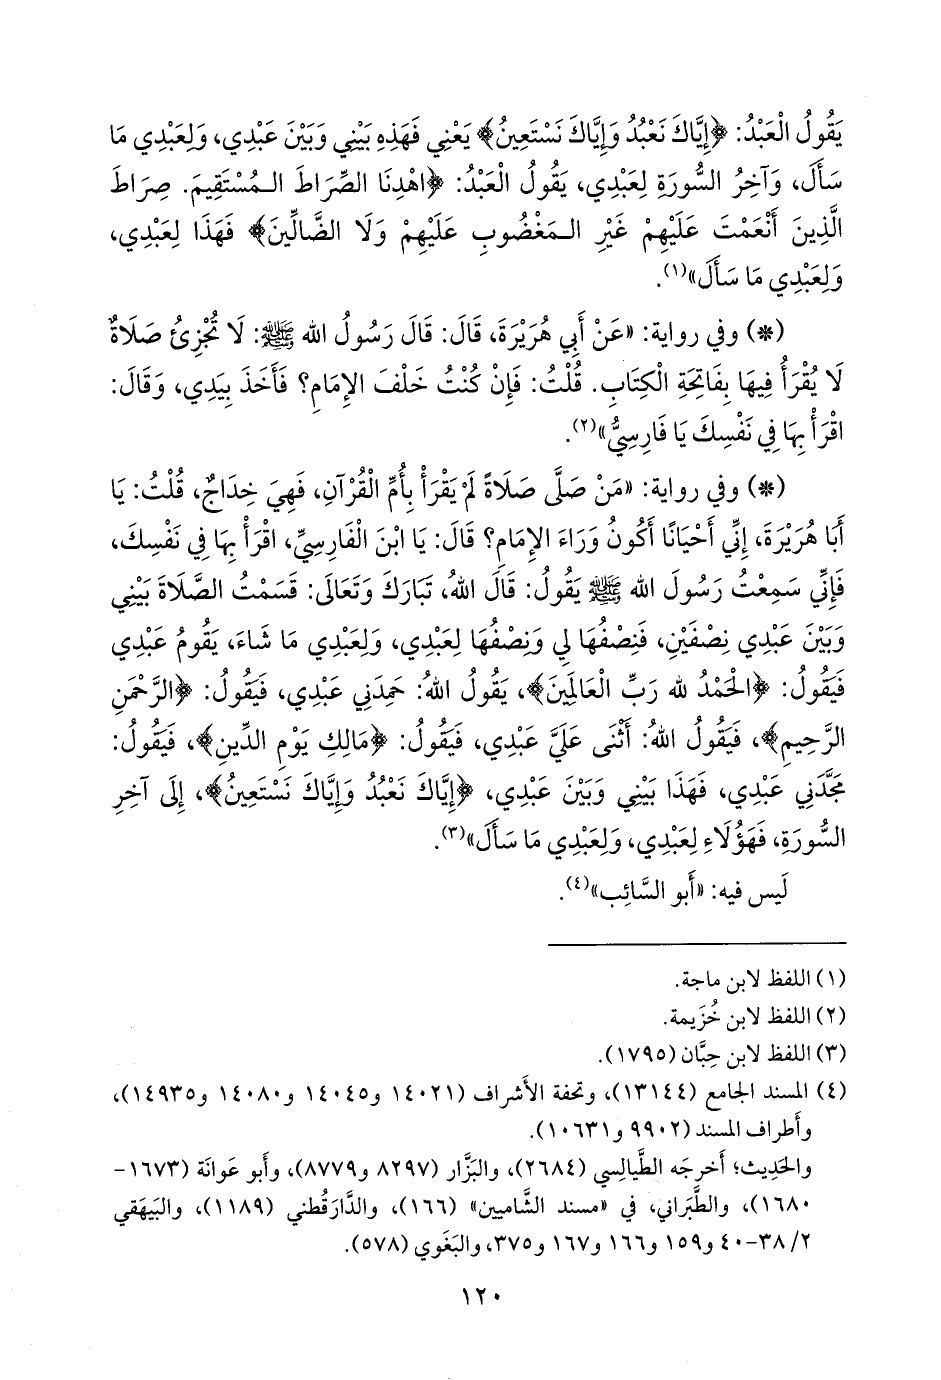 يَقُولُ الْعَبْدُ: ﴿إِيَّاكَ نَعْبُدُ وَإِيَّاكَ نَسْتَعِينُ﴾ يَعْنِي فَهَذِهِ بَيْنِي وَبَيْنَ عَبْدِي، وَلِعَبْدِي مَا
سَأَلَ، وَآخِرُ السُّورَةِ لِعَبْدِي، يَقُولُ الْعَبْدُ: ﴿اهْدِنَا الصِّرَاطَ الْمُسْتَقِيمَ. صِرَاطَ
الَّذِينَ أَنْعَمْتَ عَلَيْهِمْ غَيْرِ الْمَغْضُوبِ عَلَيْهِمْ وَلَا الضَّالِّينَ﴾ فَهَذَا لِعَبْدِي،
وَلِعَبْدِي مَا سَأَلَ»(١).
(*) وفي رواية: «عَنْ أَبِي هُرَيْرَةَ، قَالَ: قَالَ رَسُولُ الله ﷺ: لَا تُجْزِئُ صَلَاةٌ
لَا يُقْرَأُ فِيهَا بِفَاتِحَةِ الْكِتَابِ. قُلْتُ: فَإِنْ كُنْتُ خَلْفَ الإِمَامِ؟ فَأَخَذَ بِيَدِي، وَقَالَ:
اقْرَأْ بِهَا فِي نَفْسِكَ يَا فَارِسِيُّ»(٢).
(*) وفي رواية: «مَنْ صَلَّى صَلَاةً لَمْ يَقْرَأْ بِأُمِّ الْقُرْآنِ، فَهِيَ خِدَاجٌ، قُلْتُ: يَا
أَبَا هُرَيْرَةَ، إِنِّي أَحْيَانًا أَكُونُ وَرَاءَ الإِمَامِ؟ قَالَ: يَا ابْنَ الْفَارِسِيِّ، اقْرَأْ بِهَا فِي نَفْسِكَ،
فَإِنِّي سَمِعْتُ رَسُولَ الله ﷺ يَقُولُ: قَالَ اللهُ، تَبَارَكَ وَتَعَالَى: قَسَمْتُ الصَّلَاةَ بَيْنِي
وَبَيْنَ عَبْدِي نِصْفَيْنِ، فَنِصْفُهَا لِي وَنِصْفُهَا لِعَبْدِي، وَلِعَبْدِي مَا شَاءَ، يَقُومُ عَبْدِي
فَيَقُولُ: ﴿الْحَمْدُ لله رَبِّ الْعَالَمِينَ﴾، يَقُولُ اللهُ: حَمِدَنِي عَبْدِي، فَيَقُولُ: ﴿الرَّحْمَنِ
الرَّحِيمِ﴾، فَيَقُولُ اللهُ: أَثْنَى عَلَيَّ عَبْدِي، فَيَقُولُ: ﴿مَالِكِ يَوْمِ الدِّينِ﴾، فَيَقُولُ:
مَجَّدَنِي عَبْدِي، فَهَذَا بَيْنِي وَبَيْنَ عَبْدِي، ﴿إِيَّاكَ نَعْبُدُ وَإِيَّاكَ نَسْتَعِينُ﴾، إِلَى آخِرِ
السُّورَةِ، فَهَؤُلَاءِ لِعَبْدِي، وَلِعَبْدِي مَا سَأَلَ»(٣).
لَيس فيه: «أَبو السَّائِب»(٤).
(١) اللفظ لابن ماجة.
(٢) اللفظ لابن خُزَيمة.
(٣) اللفظ لابن حِبَّان (١٧٩٥).
(٤) المسند الجامع (١٣١٤٤)، وتحفة الأَشراف (١٤٠٢١ و١٤٠٤٥ و١٤٠٨٠ و١٤٩٣٥)،
وأَطراف المسند (٩٩٠٢ و١٠٦٣١).
والحَدِيث؛ أَخرجَه الطَّيالِسي (٢٦٨٤)، والبَزَّار (٨٢٩٧ و٨٧٧٩)، وأَبو عَوانَة (١٦٧٣-
١٦٨٠)، والطَّبَراني، في «مسند الشَّاميين» (١٦٦)، والدَّارَقُطني (١١٨٩)، والبَيهَقي
٢/ ٣٨-٤٠ و١٥٩ و١٦٦ و١٦٧ و٣٧٥، والبَغَوي (٥٧٨).
١٢٠